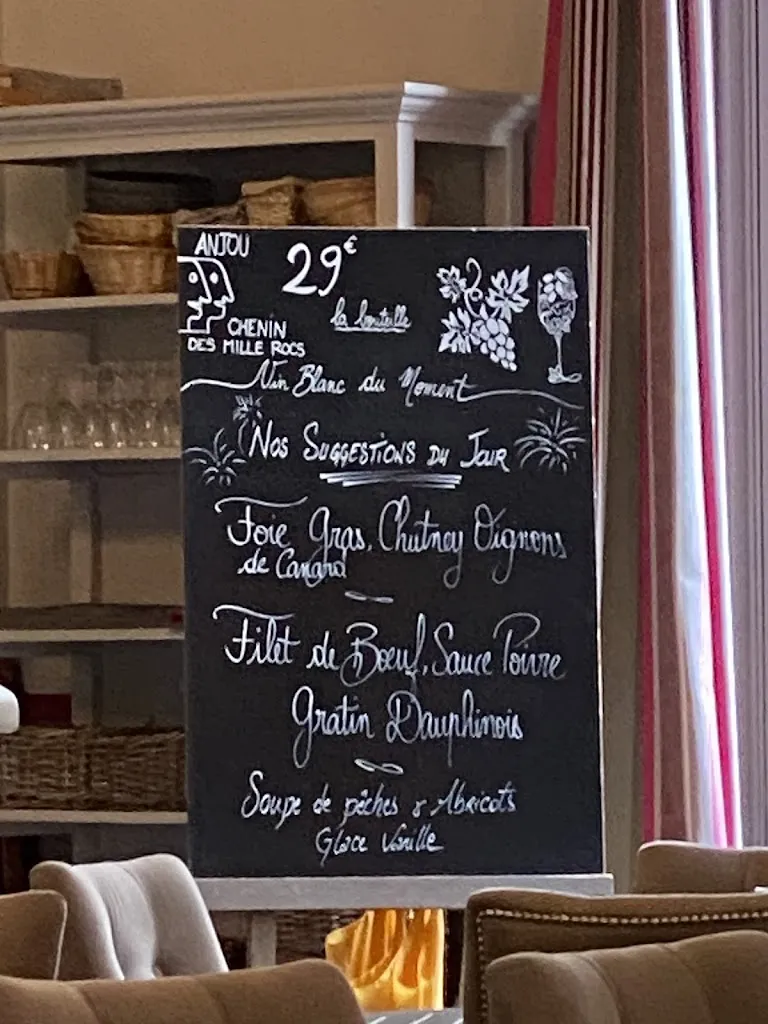 ANJOU
29€
la bouteille
CHENIN
DES MILLE ROCS
Vin Blanc du Moment
Nos Suggestions du Jour
Foie Gras, Chutney Oignons
de Canard
Filet de Bœuf, Sauce Poivre
Gratin Dauphinois
Soupe de pêches & Abricots
Glace Vanille